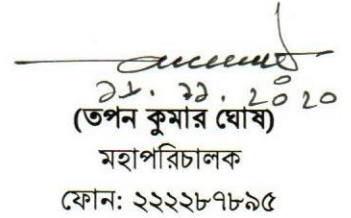 ১১. ২০২০
(তপন কুমার ঘোষ)
মহাপরিচালক
ফোন: ২২২২৮৭৮৯৫